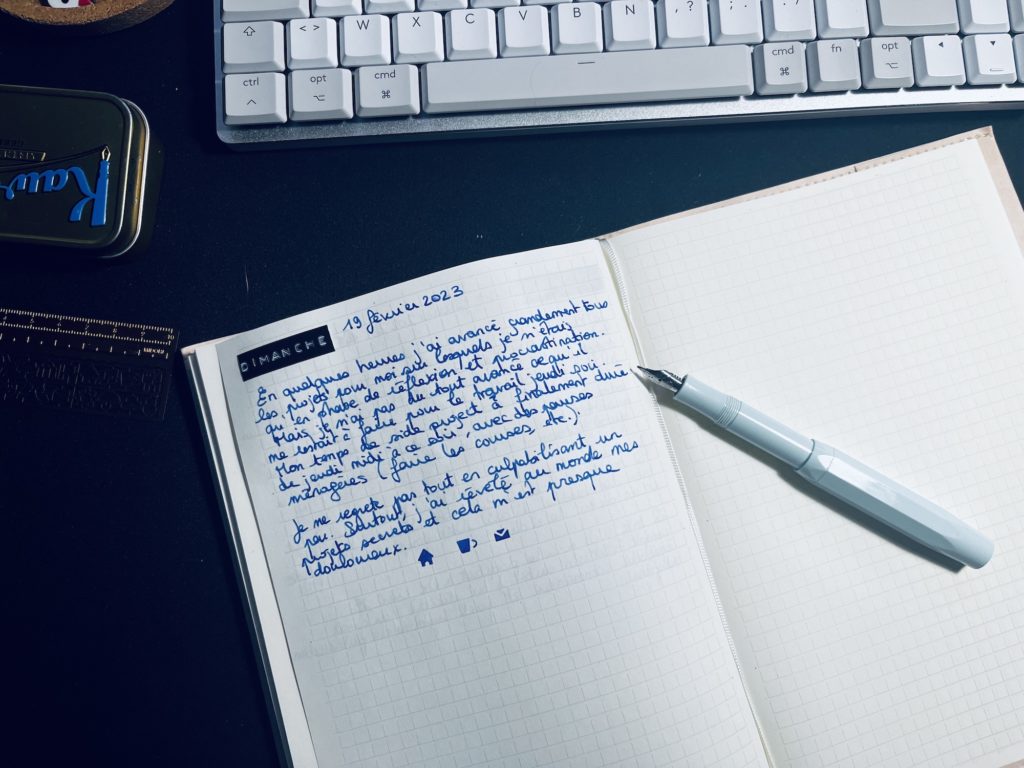 W X C V B N , ? . ; / :
ctrl opt cmd cmd fn opt
Kaw
DIMANCHE 19 février 2023
En quelques heures j'ai avancé grandement tous
les projets pour moi sur lesquels je n'étais
qu'en phase de réflexion et procrastination.
Mais je n'ai pas du tout avancé ce qu'il
me restait à faire pour le travail jeudi soir.
Mon temps de side project à finalement duré
de jeudi midi à ce soir, avec des pauses
ménagères (faire les courses, etc.)
Je me regrete pas tout en culpabilisant un
peu. Surtout, j'ai révélé au monde mes
projets secrets et cela m'est presque
douloureux.